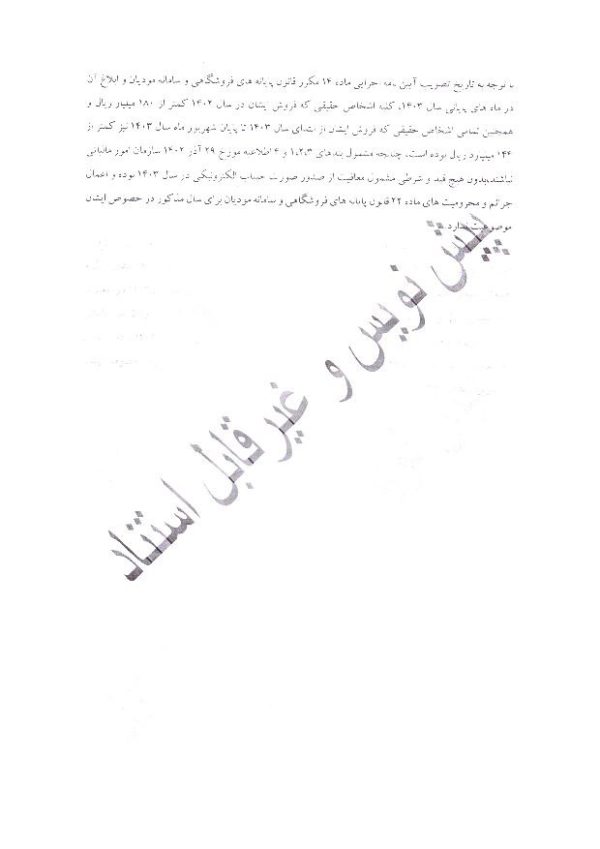 با توجه به تاریخ تصویب آیین نامه اجرایی ماده ۱۴ مکرر قانون پایانه های فروشگاهی و سامانه مودیان و ابلاغ آن
در ماه های پایانی سال ۱۴۰۳، کلیه اشخاص حقیقی که فروش ایشان در سال ۱۴۰۲ کمتر از ۱۸۰ میلیارد ریال و
همچنین تمامی اشخاص حقیقی که فروش ایشان از ابتدای سال ۱۴۰۳ تا پایان شهریور ماه سال ۱۴۰۳ نیز کمتر از
۱۴۴ میلیارد ریال بوده است، چنانچه مشمول بندهای ۱،۲،۳ و ۴ اطلاعیه مورخ ۲۹ آذر ۱۴۰۲ سازمان امور مالیاتی
نباشند،بدون هیچ قید و شرطی مشمول معافیت از صدور صورت حساب الکترونیکی در سال ۱۴۰۳ بوده و اعمال
جرائم و محرومیت های ماده ۲۲ قانون پایانه های فروشگاهی و سامانه مودیان برای سال مذکور در خصوص ایشان
موضوعیت ندارد.
پیش نویس و غیر قابل استناد